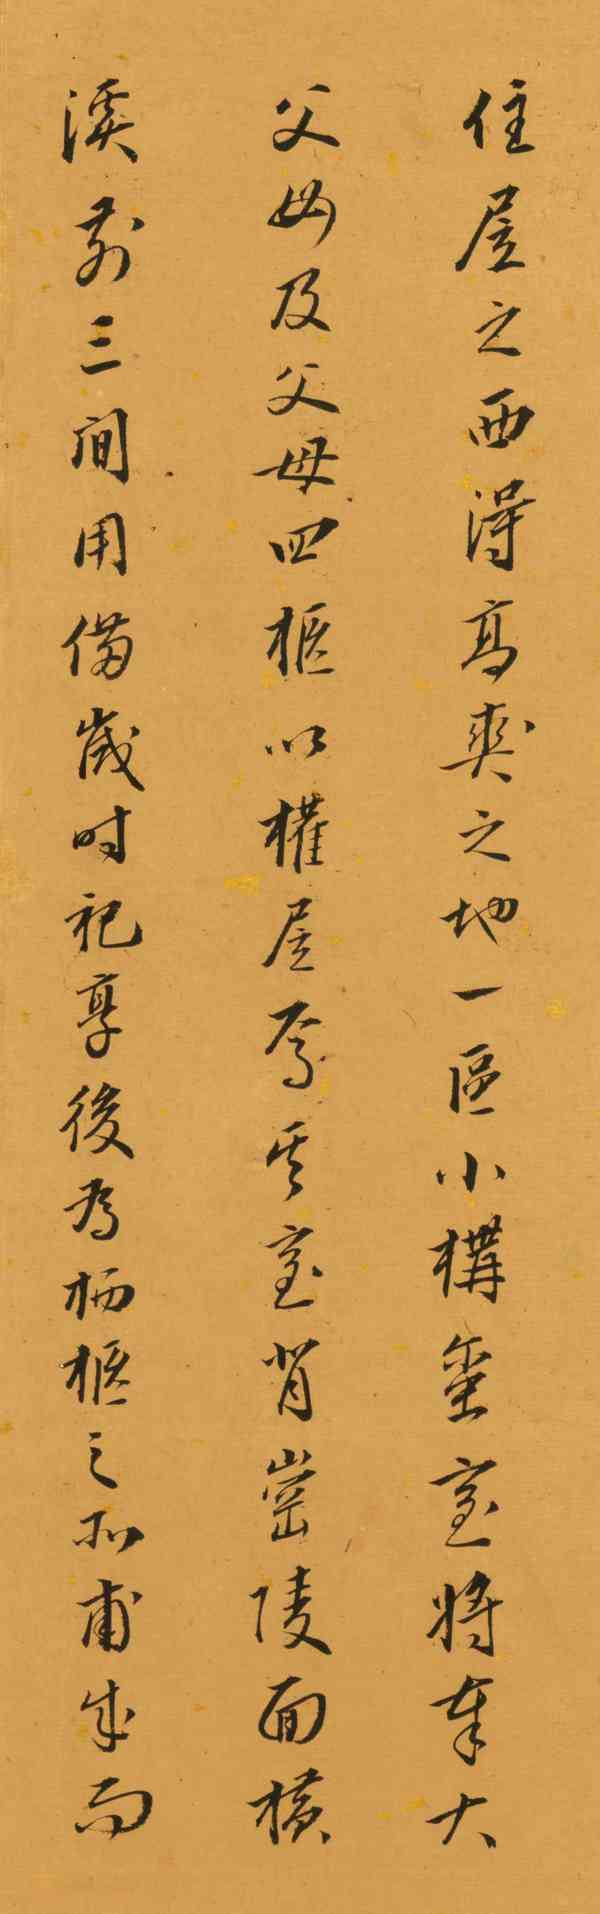 住屋之西得高爽之地一區小構堊室將奉大
父母及父母四柩以權居焉其室背崇陵面橫
溪前三間用備歲時祀享後為栖柩之所甫成而